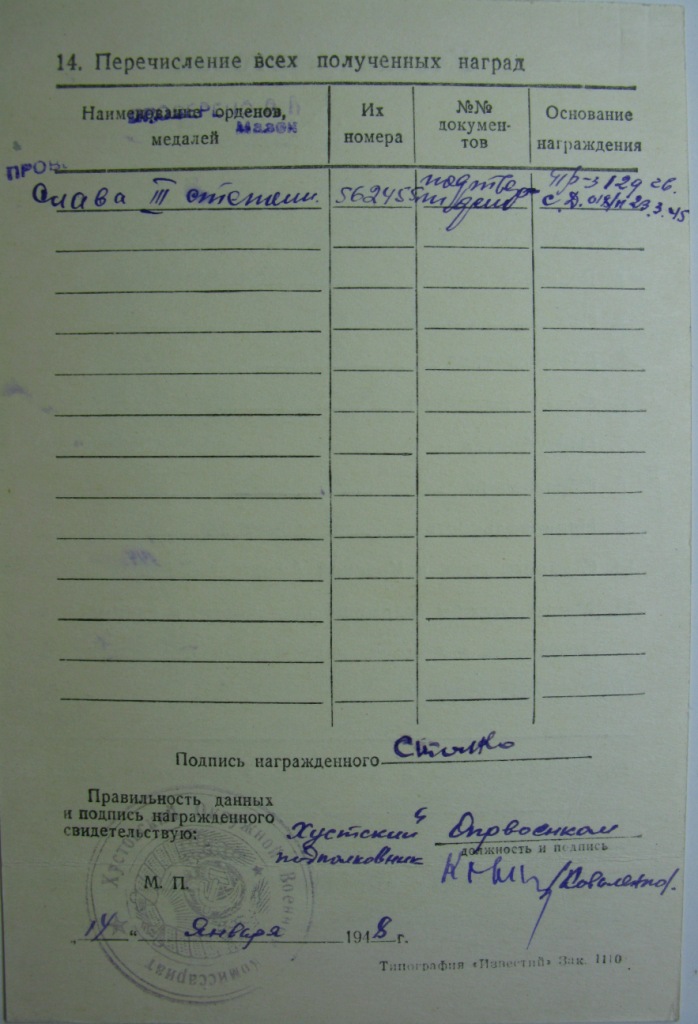 14. Перечисление всех полученных наград
Наименование орденов, медалей
Их номера
№№ документов
Основание награждения
ПРОВ.
Слава III степени.
562455
подтвер
Пр-з 129 св.
с.д. 018/н 23.3.45
Подпись награжденного
Правильность данных
и подпись награжденного
свидетельствую:
Хустский Окрвоенком
должность и подпись
подполковник
/Коваленко/.
М. П.
„14" Января 1948 г.
Типография «Известий» Зак. 1110